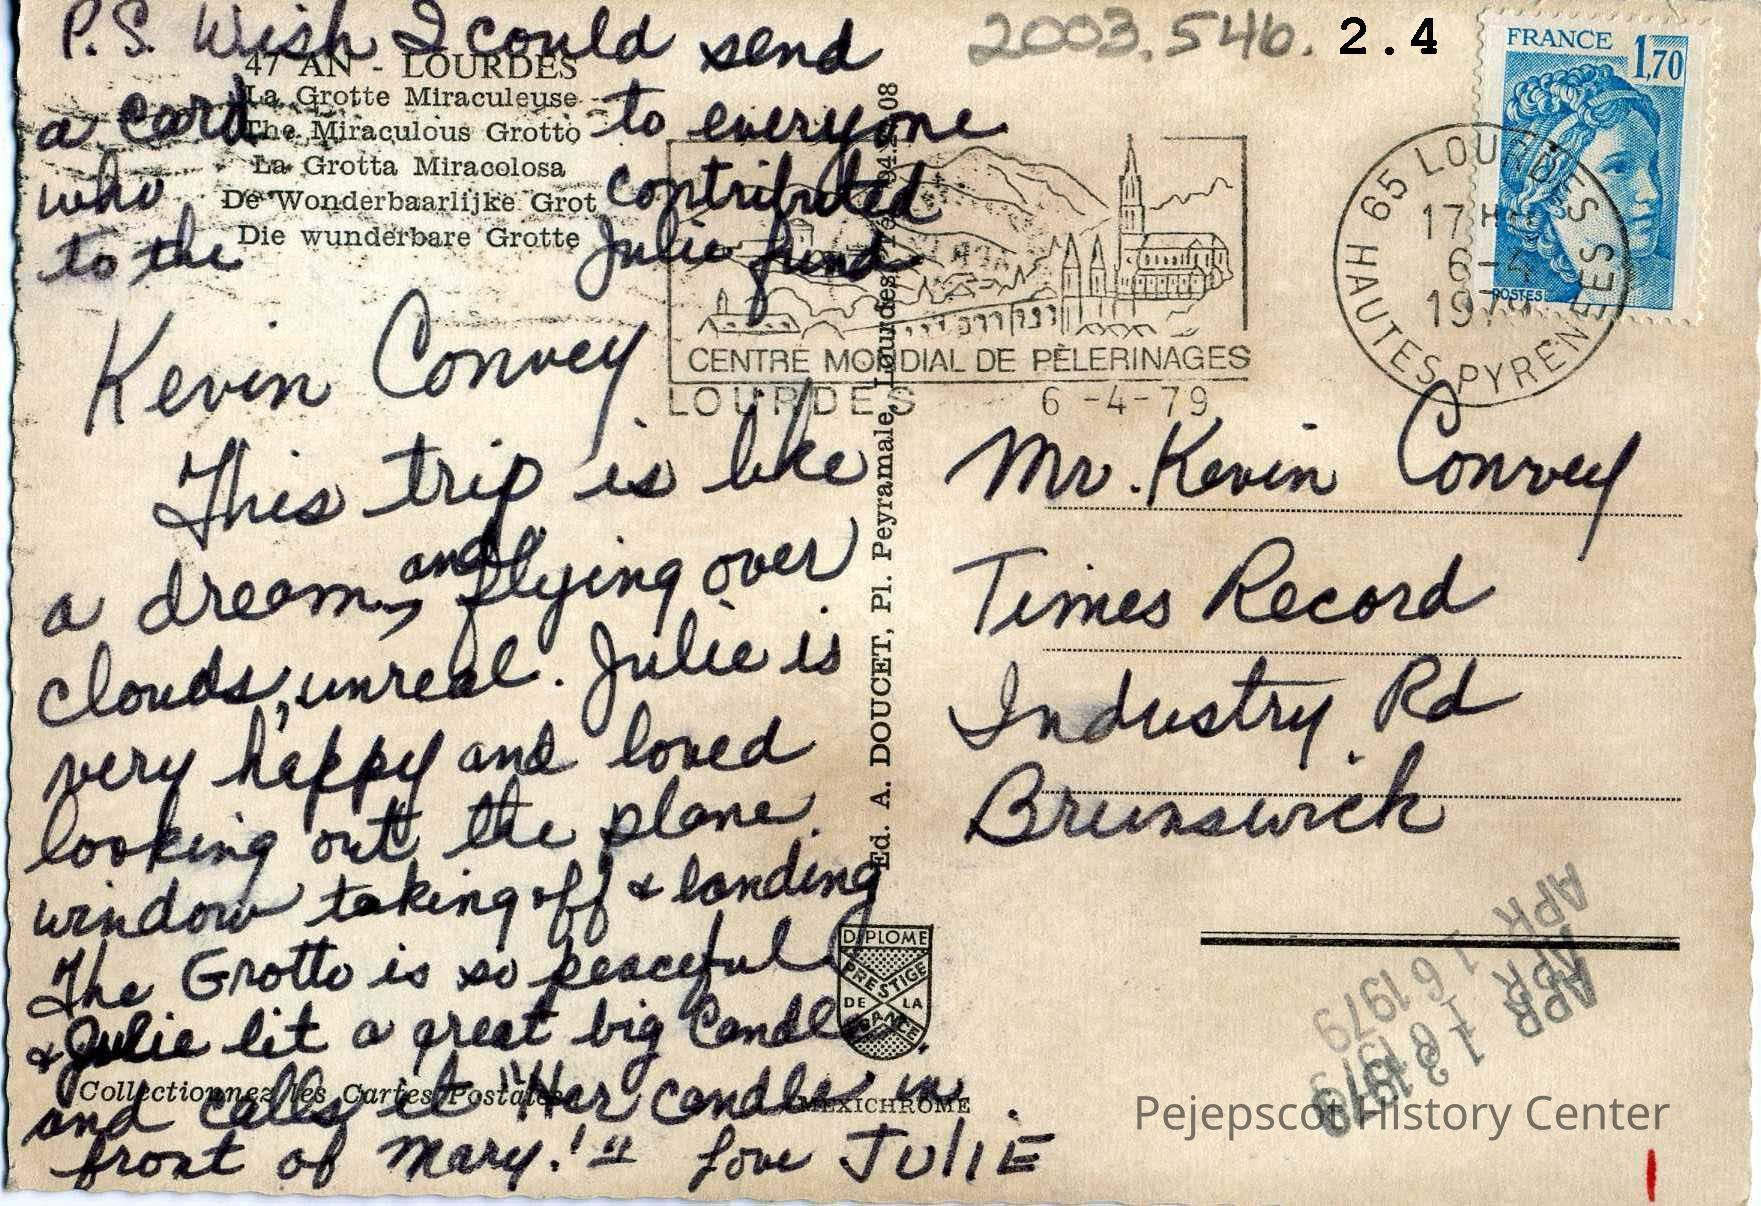 P.S. Wish I could send
a card to everyone
who contributed
to the Julie fund
47 AN - LOURDES
La Grotte Miraculeuse
The Miraculous Grotto
La Grotta Miracolosa
De Wonderbaarlijke Grot
Die wunderbare Grotte
Kevin Convey
This trip is like
a dream, and flying over
clouds, unreal. Julie is
very happy and loved
looking out the plane
window taking off & landing
The Grotto is so peaceful
& Julie lit a great big Candle.
and calls it "Her candle in
front of Mary!" Love JULIE
Collectionnez les Cartes Postales
Ed. A. DOUCET, Pl. Peyramale, Lourdes
DIPLOME
PRESTIGE
DE LA
FRANCE
MEXICHROME
2003.546. 2.4
FRANCE 1,70
POSTES
65 LOURDES
17 H
6-4
1979
HAUTES PYRENEES
CENTRE MONDIAL DE PÈLERINAGES
LOURDES 6-4-79
Mr. Kevin Convey
Times Record
Industry Rd
Brunswick
APR 16 1979
APR 16 1979
APR 13 1979
Pejepscot History Center